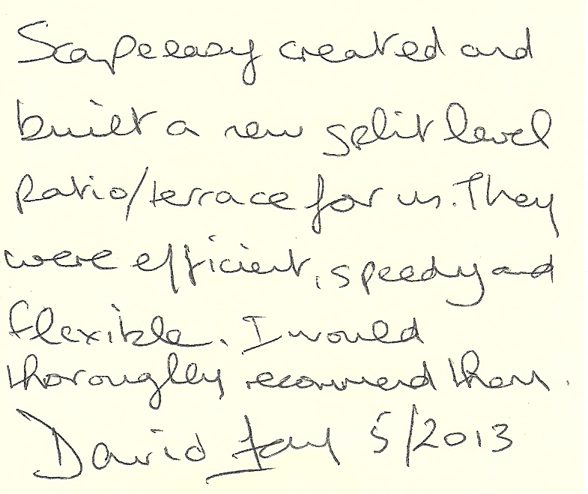 Scapeeasy created and
built a new split level
patio/terrace for us. They
were efficient, speedy and
flexible. I would
thoroughly recommend them.
David Jay 5/2013